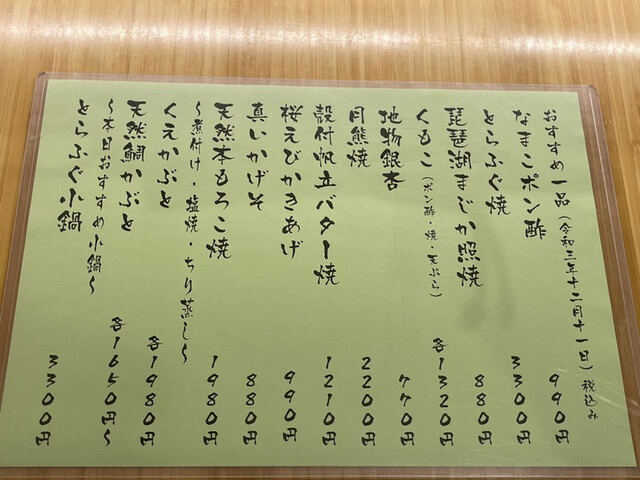 おすすめ一品(令和三年十二月十一日) 税込み
なまこポン酢 990円
とらふぐ焼 3300円
琵琶湖まじか照焼 880円
くもこ(ポン酢・焼・天ぷら) 各1320円
地物銀杏 770円
月熊焼 2200円
殻付帆立バター焼 1210円
桜えびかきあげ 990円
真いかげそ 880円
天然本もろこ焼 1980円
~煮付け・塩焼・ちり蒸し~
くえかぶと 各1980円
天然鯛かぶと 各1650円~
~本日おすすめ小鍋~
とらふぐ小鍋 3300円